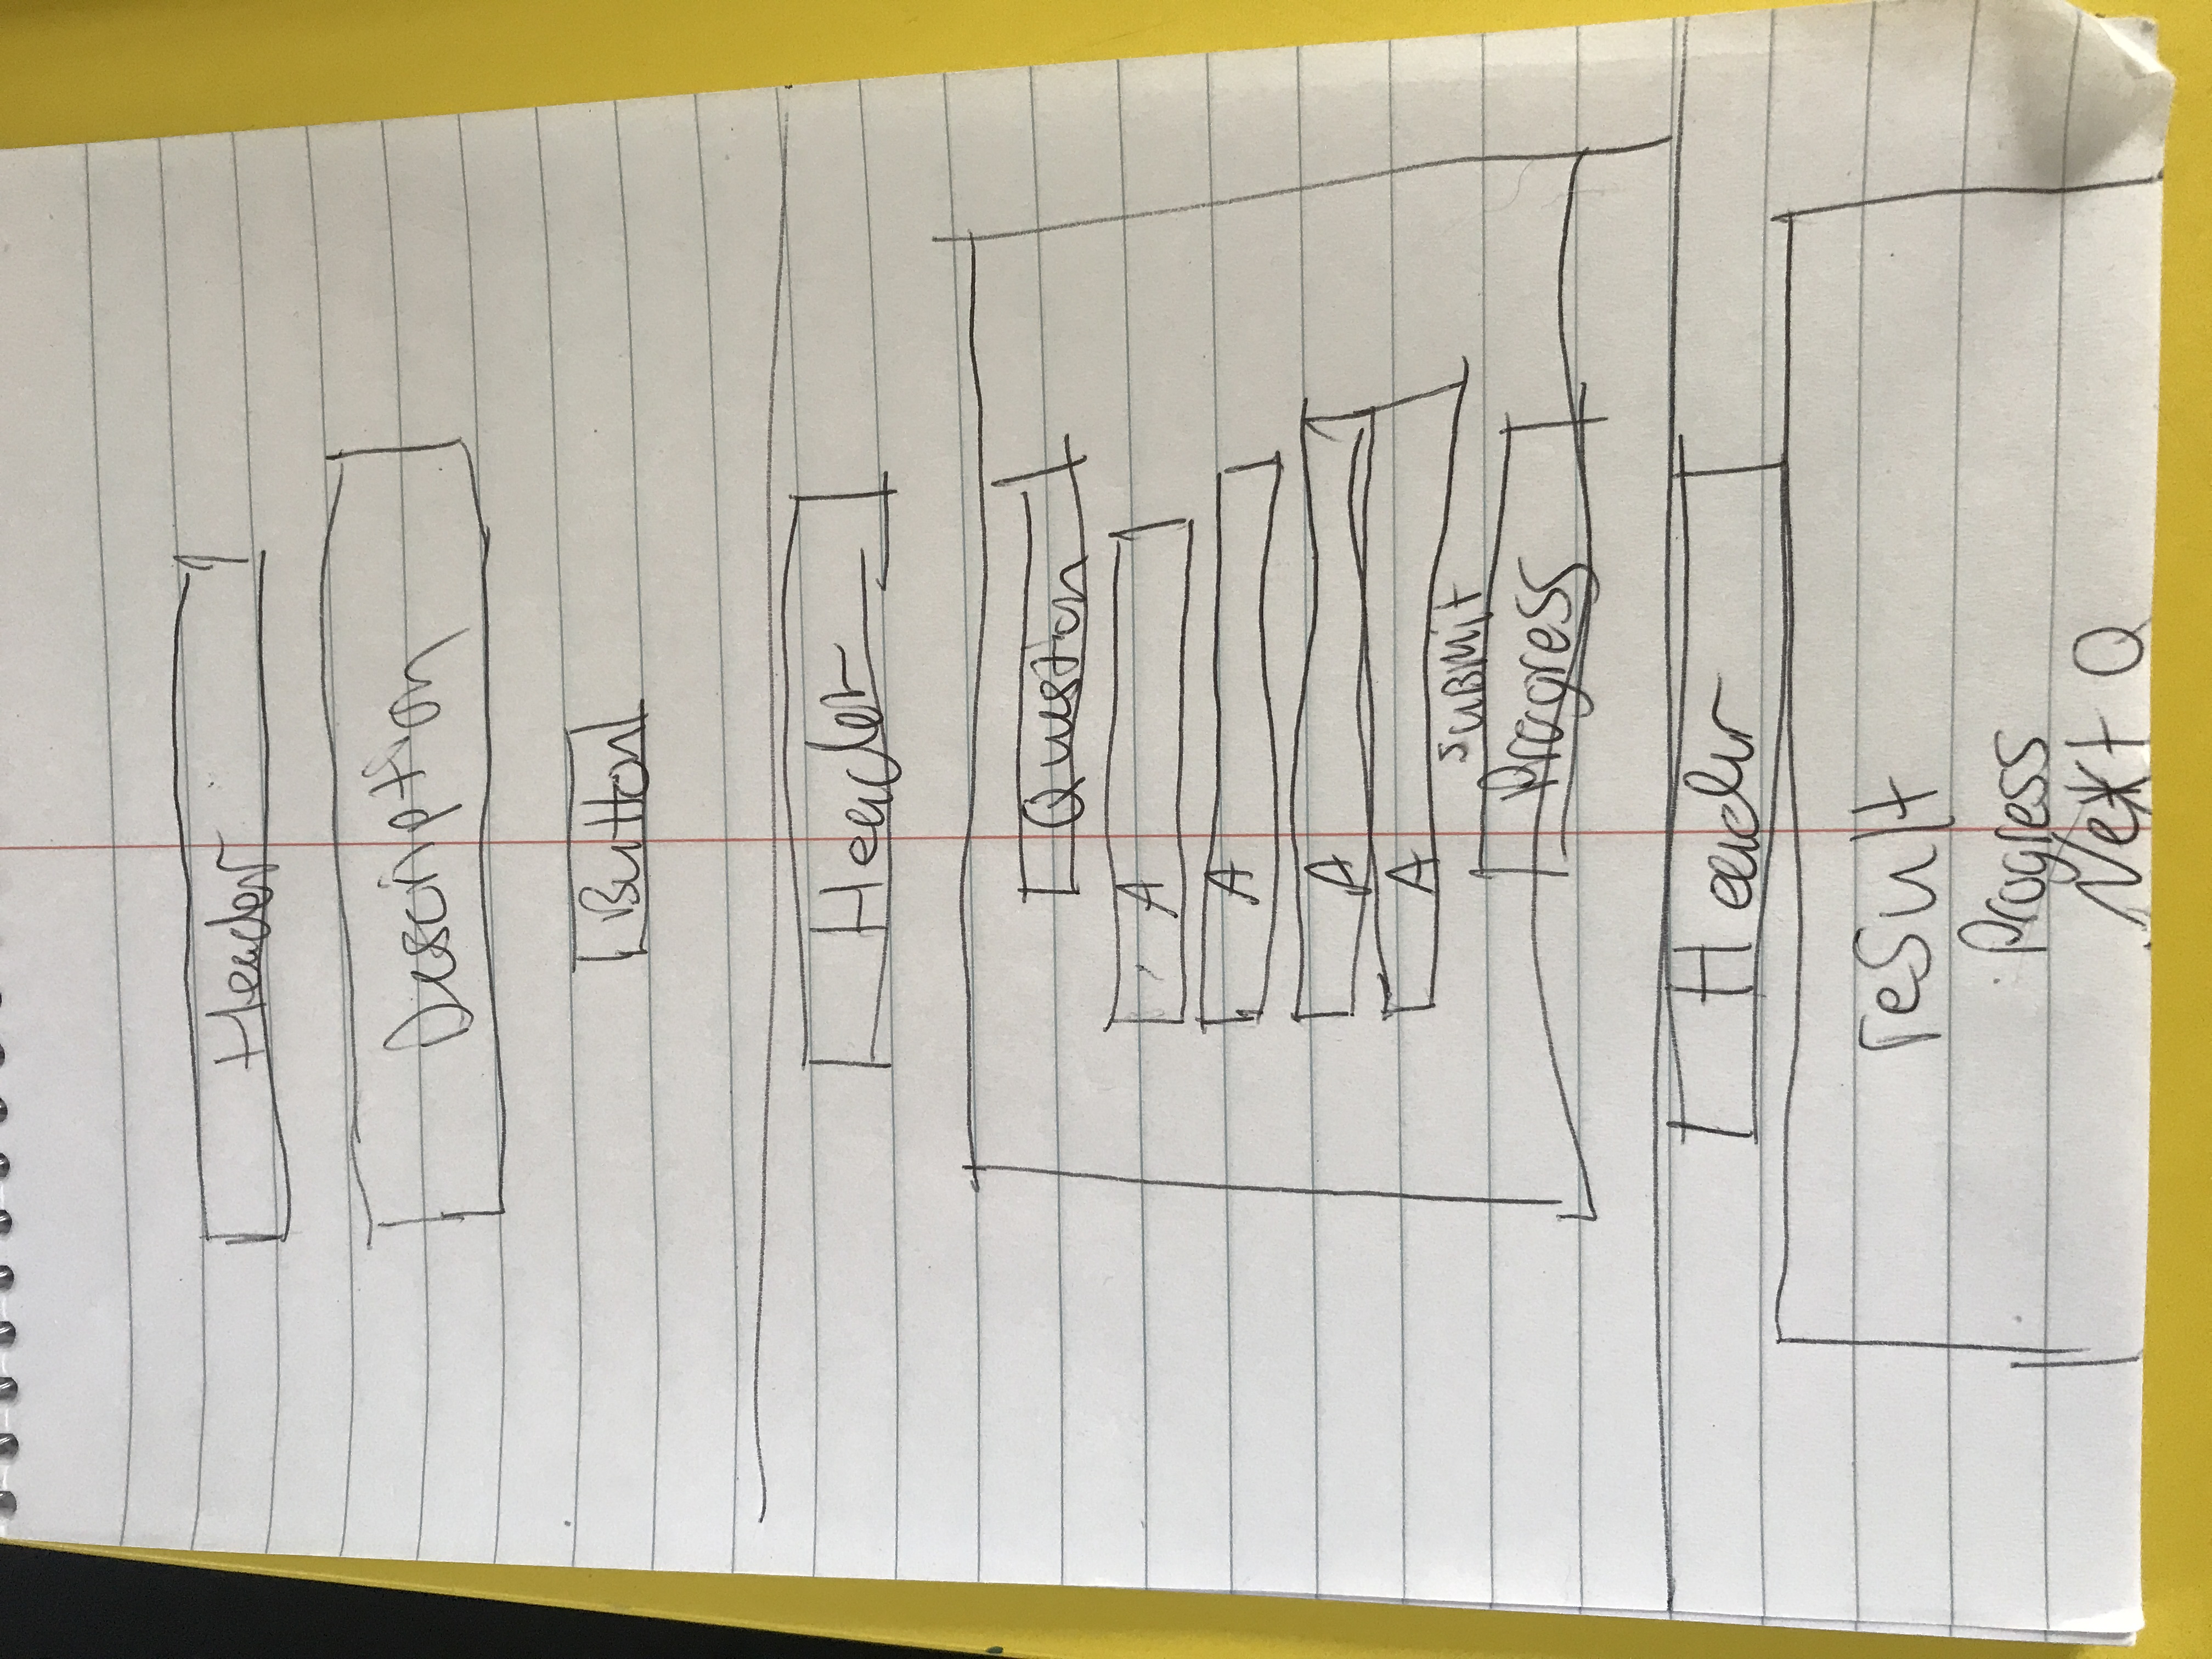 Header
Description
Button
Header
Question
A
A
A
A
SUBMIT
Progress
Header
result
Progress
Next Q